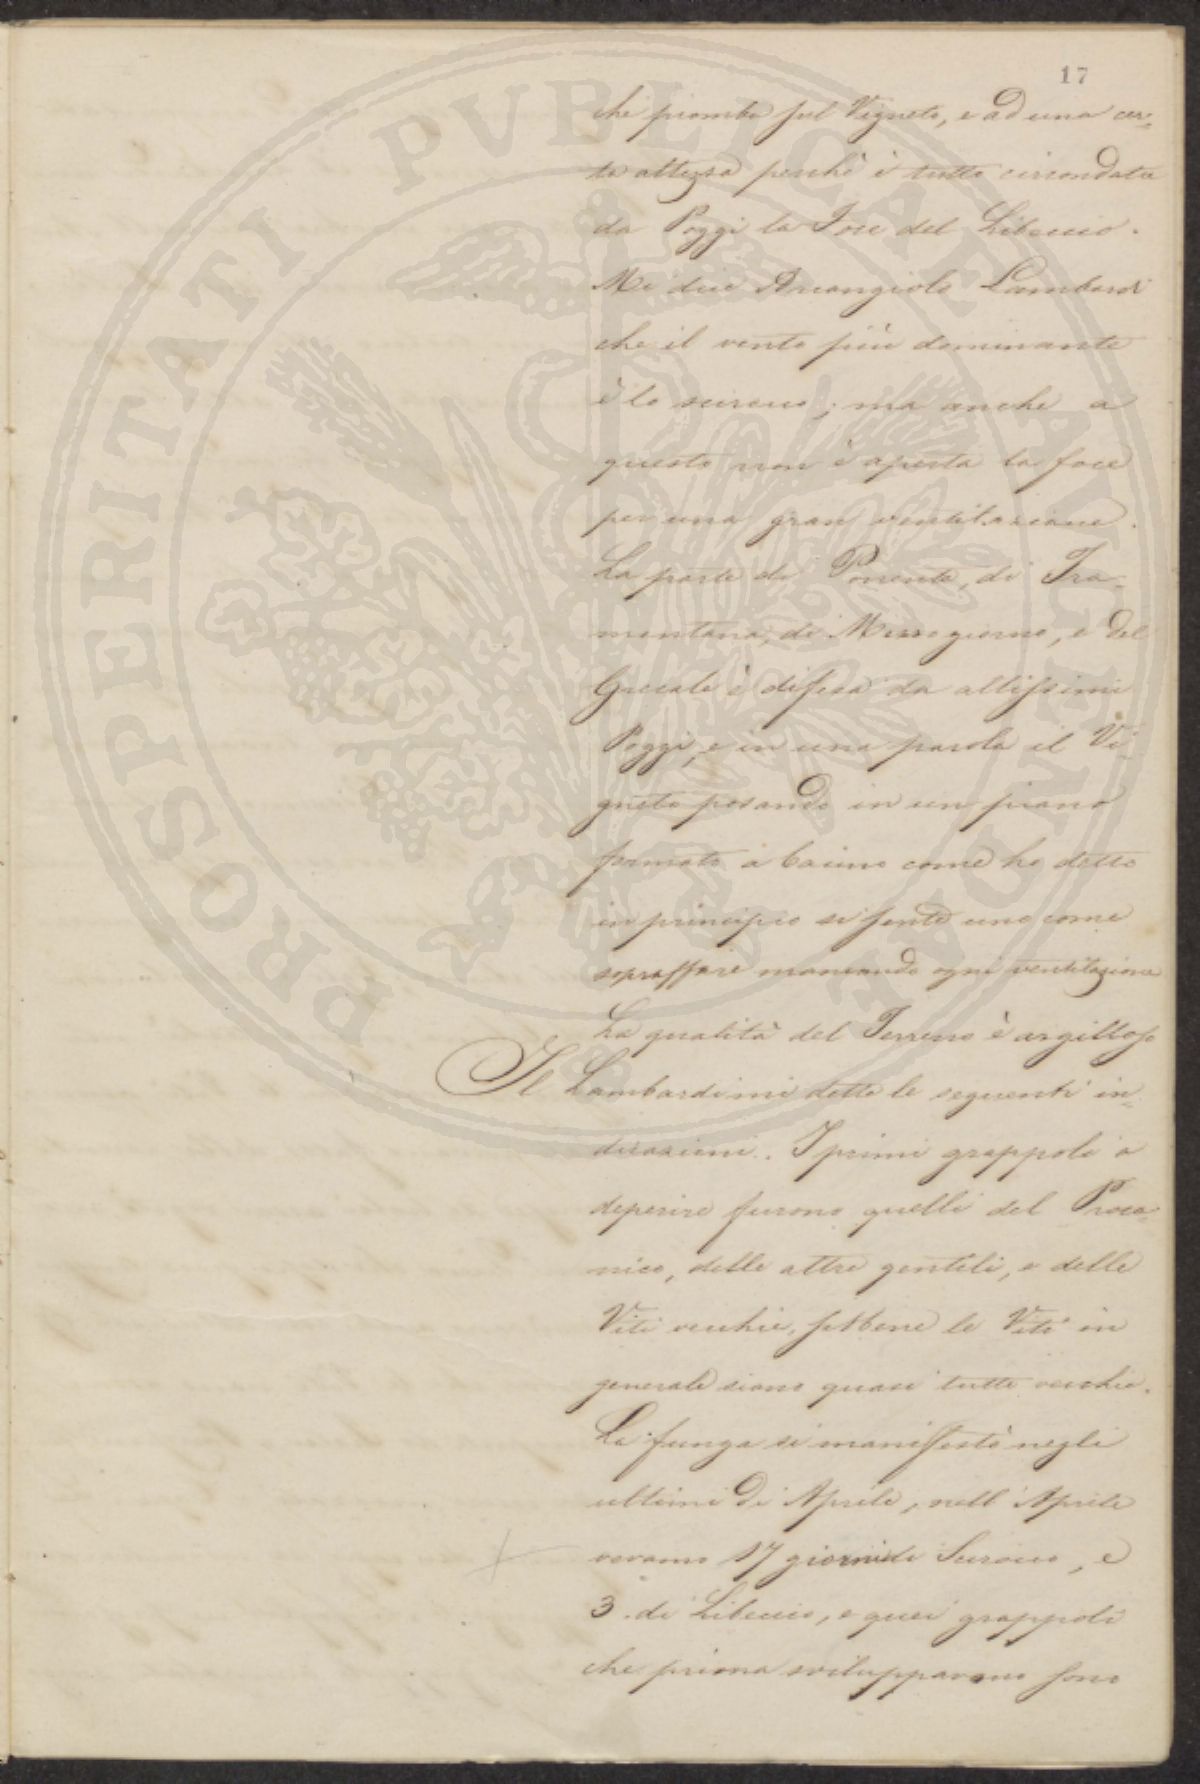 17
che piomba sul Vigneto, e ad una cer-
ta altezza perchè è tutto circondato
da Poggi la Foce del Libeccio.
Mi dice Arcangiolo Lambardi
che il vento più dominante
è lo scirocco; ma anche a
questo non è aperta la foce
per una gran ventilazione.
La parte di Ponente, di Tra-
montana, di Mezzogiorno, e del
Grecale è difesa da altissimi
Poggi, e in una parola il Vi-
gneto posando in un piano
formato a bacino come ho detto
in principio si sente uno come
sopraffare mancando ogni ventilazione
La qualità del Terreno è argilloso
Il Lambardi mi dette le seguenti in-
dicazioni. I primi grappoli a
deperire furono quelli del Proca-
nico, delle altre gentili, e delle
Viti vecchie, sebbene le Viti in
generale siano quasi tutte vecchie.
La funga si manifestò negli
ultimi di Aprile, nell'Aprile
17 giorni di Scirocco, e
3. di Libeccio, e quei grappoli
che prima svilupparono sono
PROSPERITATI PVBLICAE AVGENDAE